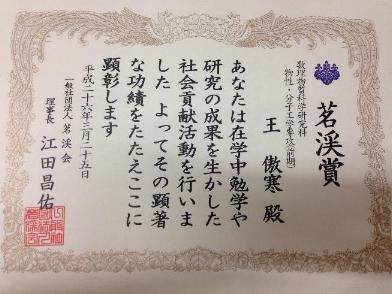 茗渓賞
数理物質科学研究科
物性・分子工学専攻(前期)
王 傲寒 殿
あなたは在学中勉学や
研究の成果を生かした
社会貢献活動を行いま
した よってその顕著
な功績をたたえここに
顕彰します
平成二十六年三月二十五日
一般社団法人 茗渓会
理事長 江田昌佑